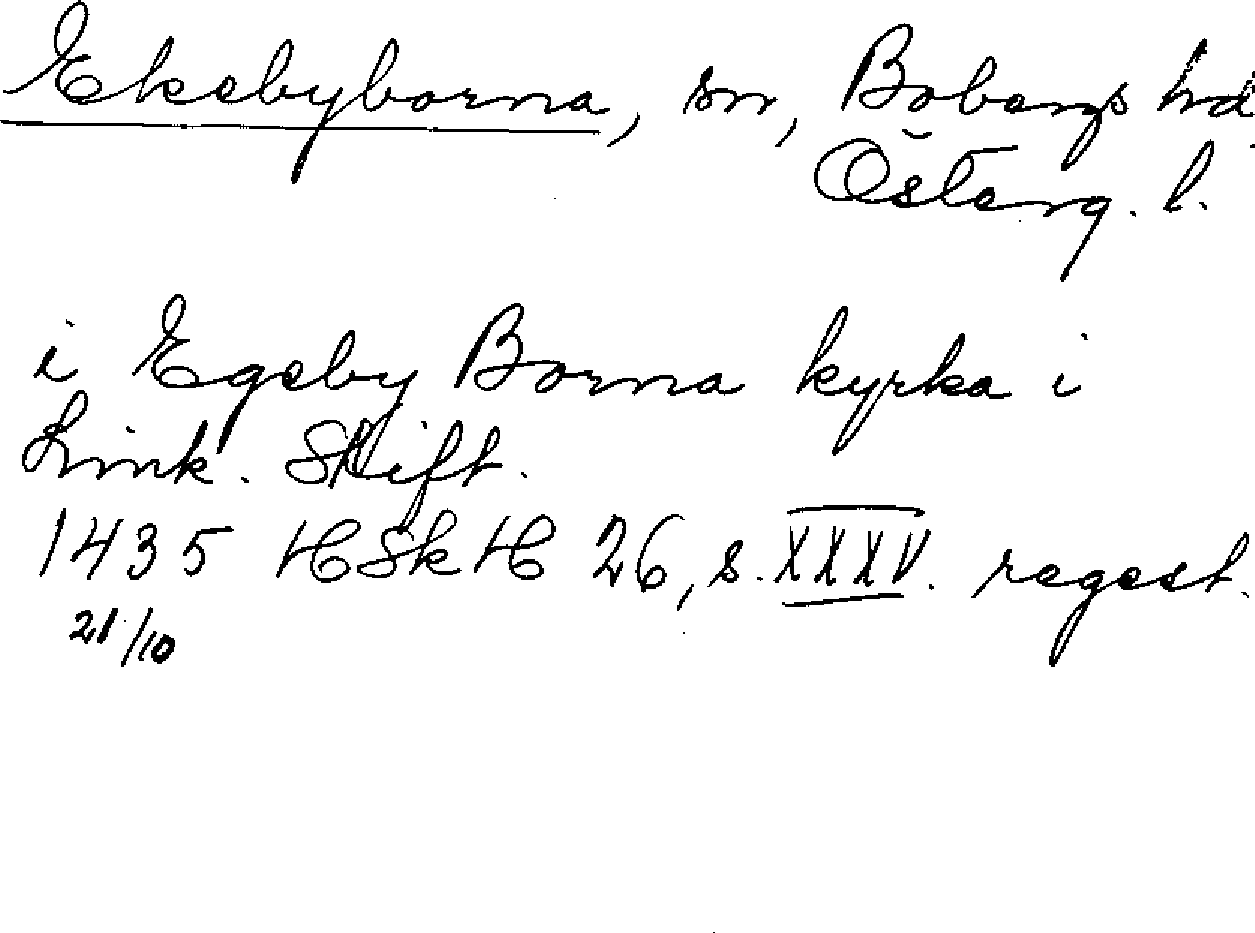 Ekebyborna, sn, Bobergs hd.
Österg. l.
i Egeby Borna kyrka i
Link. Stift.
1435 HSkH 26, s. XXXV. regest.
21/10